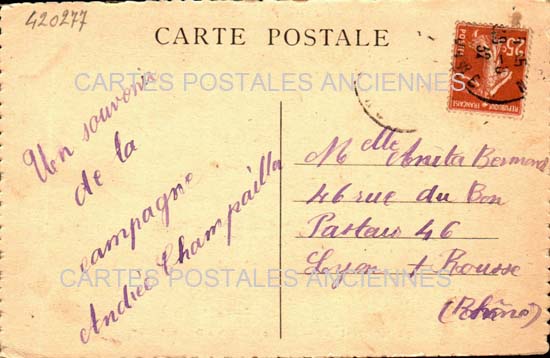 420277
CARTE POSTALE
25c
POSTES
RÉPUBLIQUE FRANÇAISE
CARTES POSTALES ANCIENNES
Un souvenir
de la
campagne
Andrée Champailla
Melle Anita Bermond
46 rue du Bon
Pasteur 46
Lyon + Rousse
(Rhône)
CARTES POSTALES ANCIENNES